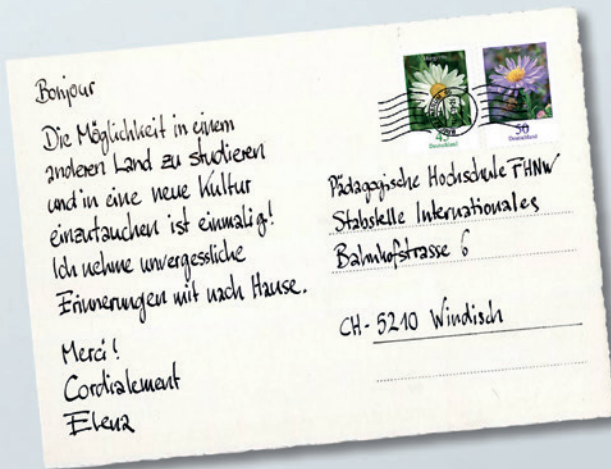 Bonjour
Die Möglichkeit in einem
anderen Land zu studieren
und in eine neue Kultur
einzutauchen ist einmalig!
Ich nehme unvergessliche
Erinnerungen mit nach Hause.
Merci!
Cordialement
Elena
45
Deutschland
50
Deutschland
Pädagogische Hochschule FHNW
Stabstelle Internationales
Bahnhofstrasse 6
CH-5210 Windisch